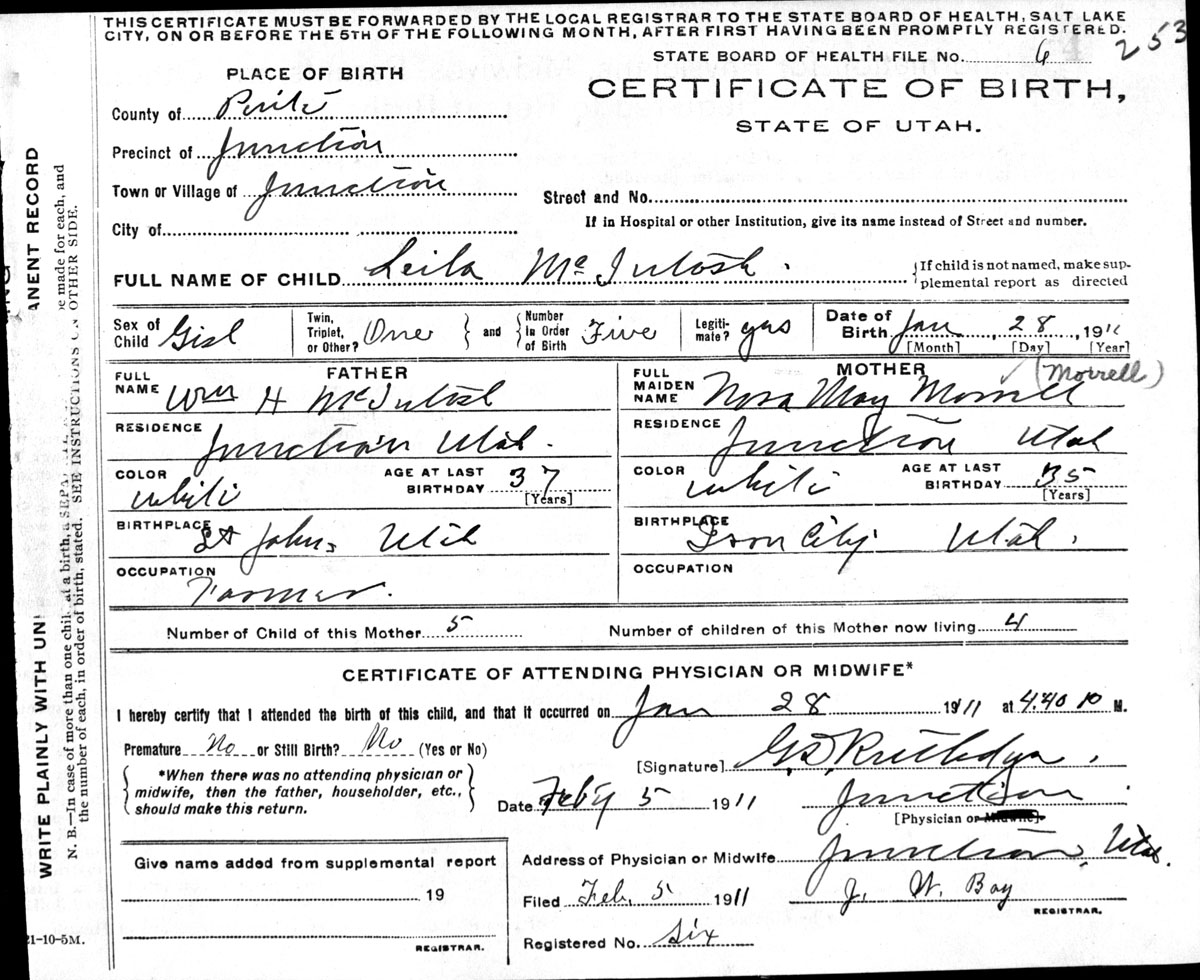 THIS CERTIFICATE MUST BE FORWARDED BY THE LOCAL REGISTRAR TO THE STATE BOARD OF HEALTH, SALT LAKE
CITY, ON OR BEFORE THE 5TH OF THE FOLLOWING MONTH, AFTER FIRST HAVING BEEN PROMPTLY REGISTERED.
253
STATE BOARD OF HEALTH FILE No. 6
PLACE OF BIRTH
CERTIFICATE OF BIRTH,
STATE OF UTAH.
County of Piute
Precinct of Junction
Town or Village of Junction
Street and No.
If in Hospital or other Institution, give its name instead of Street and number.
City of
FULL NAME OF CHILD Leila McIntosh.
If child is not named, make sup-
plemental report as directed
Sex of Child Girl
Twin, Triplet, or Other? One and Number in Order of Birth Five
Legiti-mate? yes
Date of Birth Jan 28, 1911
[Month] [Day] [Year]
FATHER
MOTHER (Morrell)
FULL NAME Wm H McIntosh
FULL MAIDEN NAME Nora May Morrell
RESIDENCE Junction Utah.
RESIDENCE Junction Utah
COLOR White AGE AT LAST BIRTHDAY 37 [Years]
COLOR White AGE AT LAST BIRTHDAY 35 [Years]
BIRTHPLACE St Johns Utah
BIRTHPLACE Iron City Utah.
OCCUPATION Farmer.
OCCUPATION
Number of Child of this Mother 5 Number of children of this Mother now living 4
CERTIFICATE OF ATTENDING PHYSICIAN OR MIDWIFE*
I hereby certify that I attended the birth of this child, and that it occurred on Jan 28 1911 at 4.40 M.
Premature No or Still Birth? No (Yes or No)
*When there was no attending physician or
midwife, then the father, householder, etc.,
should make this return.
[Signature]
Date Feby 5 1911 Junction
[Physician or Midwife]
Give name added from supplemental report
19
REGISTRAR.
Address of Physician or Midwife Junction, Utah.
Filed Feb. 5 1911 J. W. Bay
REGISTRAR.
Registered No. Six
21-10-5M.
WRITE PLAINLY WITH UN
ANENT RECORD
N. B.—In case of more than one chil at a birth, a SEPA
e made for each, and
the number of each, in order of birth, stated. SEE INSTRUCTIONS ON OTHER SIDE.